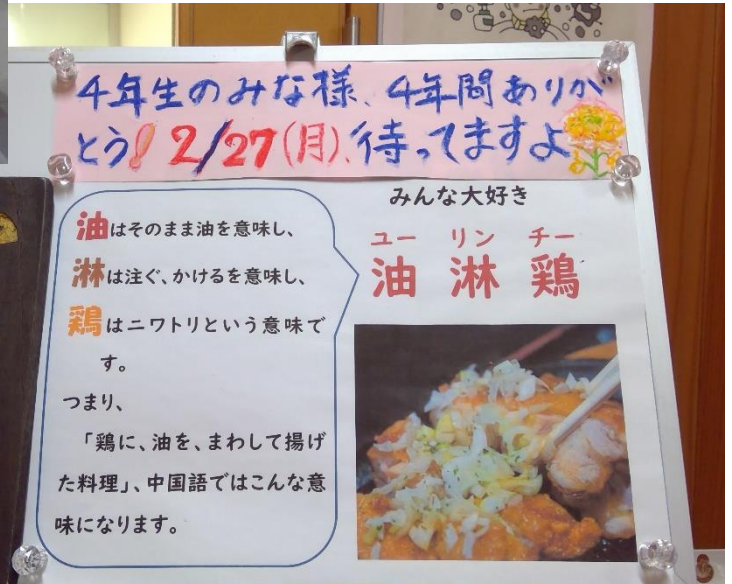 4年生のみな様、4年間ありが
とう!2/27(月)、待ってますよ
油はそのまま油を意味し、
淋は注ぐ、かけるを意味し、
鶏はニワトリという意味で
す。
つまり、
「鶏に、油を、まわして揚げ
た料理」、中国語ではこんな意
味になります。
みんな大好き
ユー リン チー
油 淋 鶏